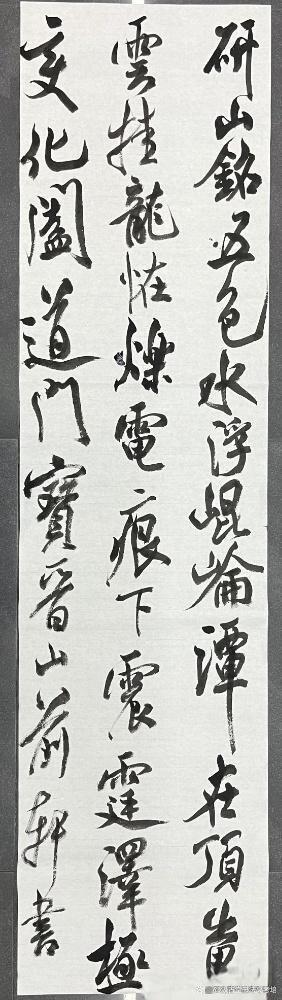 研山銘五色水浮崐崘潭在頂出黑
雲挂龍恠爍電痕下震霆澤極
變化闔道門寶晉山前軒書